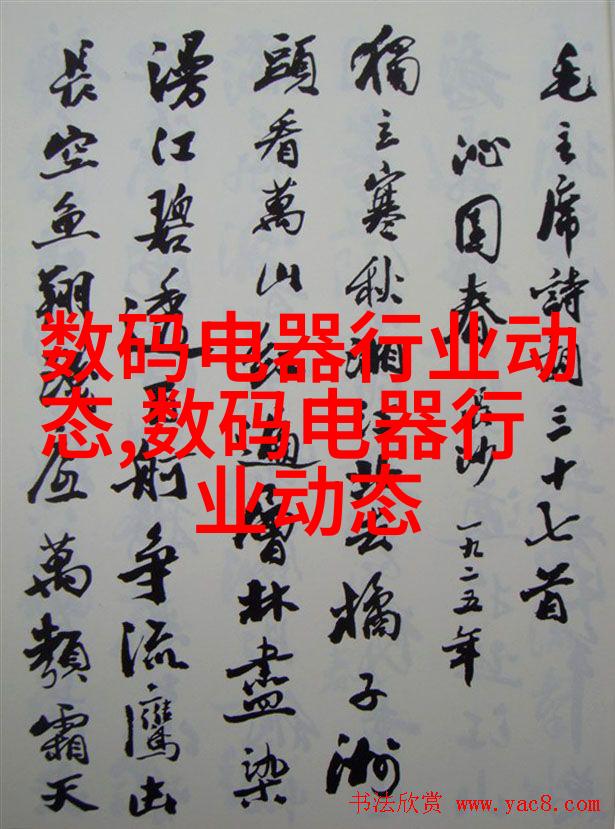 毛主席詩詞三十七首
沁園春 長沙 一九二五年
獨立寒秋湘江北去橘子洲
頭看萬山紅遍層林盡染
漫江碧透百舸爭流鷹击
長空魚翔淺底萬類霜天
数码电器行业动
态,数码电器行
业动态
书法欣赏 www.yac8.com